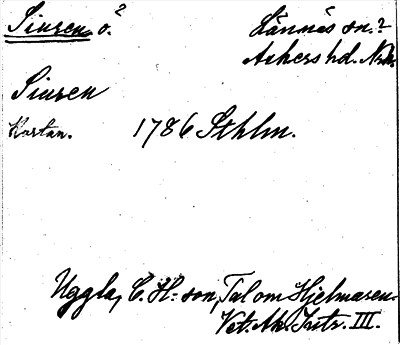 Sinsen ö.²
Lännäs sn.?
Askers hd. Nrke
Sinsen
Kartan. 1786 Sthlm.
Uggla, C. H:son, Tal om Hjelmaren.
Vet. Ak. Intr. III.